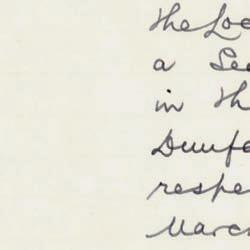 the Loc
a See
in th
Dunfe
respe
March